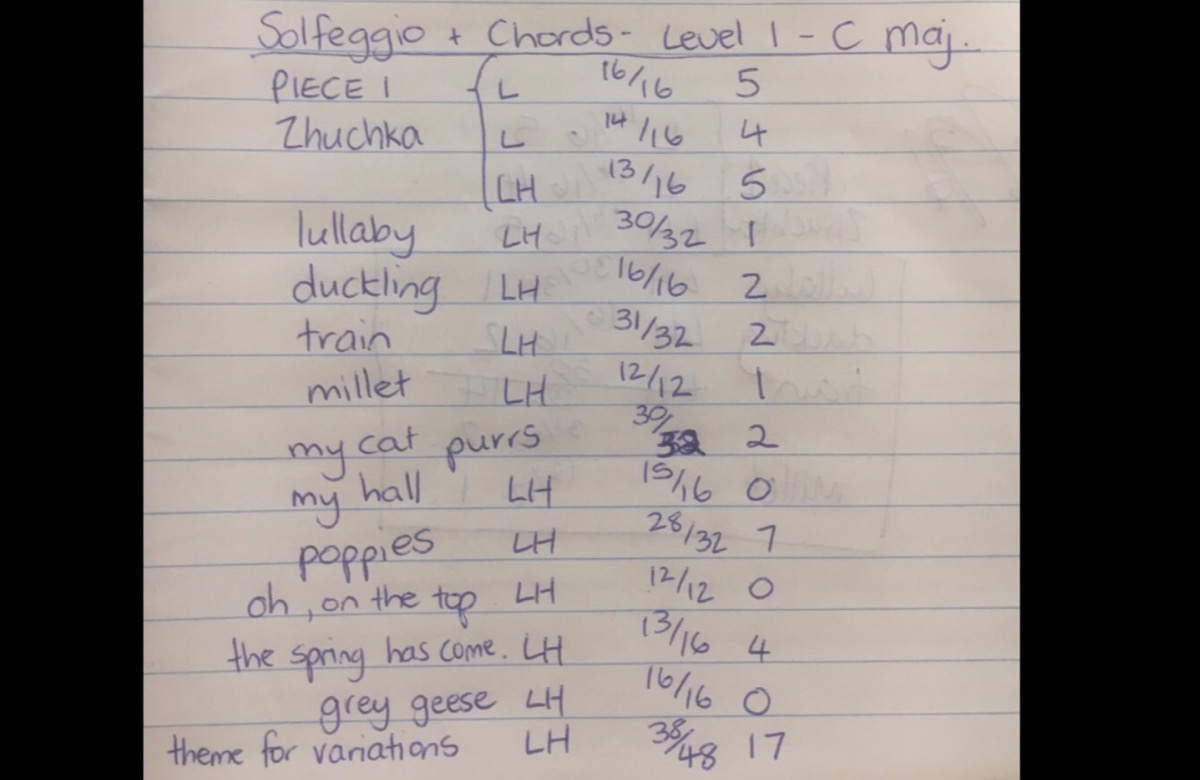 Solfeggio + Chords - Level 1 - C maj.
PIECE 1 L 16/16 5
Zhuchka L 14/16 4
LH 13/16 5
lullaby LH 30/32 1
duckling LH 16/16 2
train LH 31/32 2
millet LH 12/12 1
my cat purrs 30/32 2
my hall LH 15/16 0
poppies LH 28/32 7
oh, on the top LH 12/12 0
the spring has come. LH 13/16 4
grey geese LH 16/16 0
theme for variations LH 38/48 17